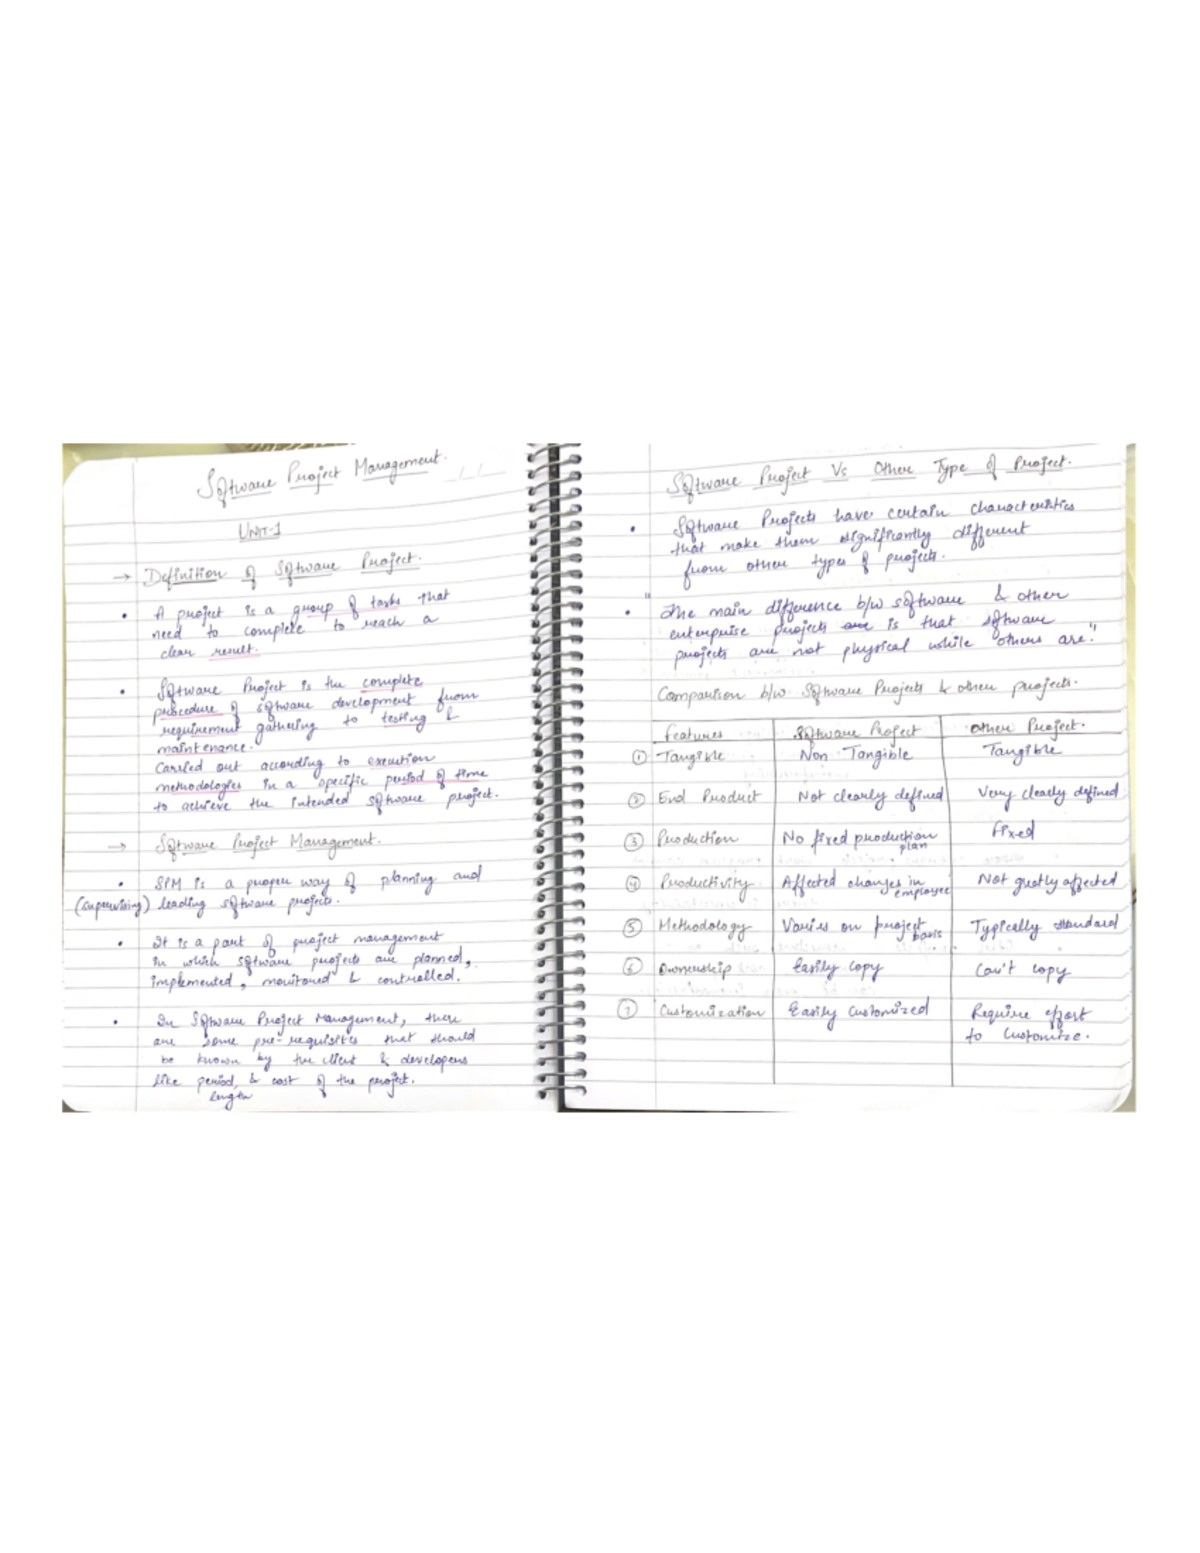 Software Project Management.
UNIT-1
→ Definition of Software Project.
• A project is a group of tasks that
need to complete to reach a
clear result.
• Software Project is the complete
procedure of software development from
requirement gathering to testing &
maintenance.
Carried out according to execution
methodologies in a specific period of time
to achieve the intended software project.
→ Software Project Management.
• SPM is a proper way of planning and
(supervising) leading software projects.
• It is a part of project management
in which software projects are planned,
implemented, monitored & controlled.
• In Software Project Management, there
are some pre-requisites that should
be known by the client & developers
like period, & cost of the project.
length
Software Project Vs Other Type of Project.
• Software Projects have certain characteristics
that make them significantly different
from other types of projects.
• "The main difference b/w software & other
enterprise projects are is that software
projects are not physical while others are."
Comparison b/w Software Projects & other projects.
Features Software Project Other Project.
① Tangible Non Tangible Tangible
② End Product Not clearly defined Very clearly defined
③ Production No fixed production plan Fixed
④ Productivity Affected changes in employee Not greatly affected
⑤ Methodology Varies on project basis Typically standard
⑥ Ownership Easily copy Can't copy
⑦ Customization Easily Customized Require effort
to Customize.